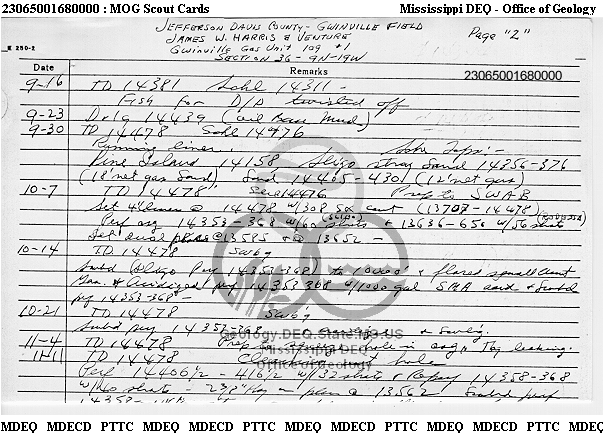 23065001680000 : MOG Scout Cards Mississippi DEQ - Office of Geology
JEFFERSON DAVIS COUNTY - GWINVILLE FIELD
JAMES W. HARRIS & VENTURE Page "2"
Gwinville Gas Unit 109 #1
SECTION 36-9N-19W
E 250-2
Date Remarks 23065001680000
9-16 TD 14381 Schl 14311 -
Fsg for D/D twisted off
9-23 Drlg 14439 (Oil Base Mud)
9-30 TD 14478 Schl 14476
Running liner Schl Tops:-
Pine Island 14158 Sligo stray sand 14356-376
(18' net gas Sand) Sand 14405-4301 (12' net gas)
10-7 TD 14478 Schl 14476 Prep to SWAB
Set 4" liner @ 14478 w/308 sx cmt (13709-14478)
Perf 14353-368 w/60 shots & 13636-656 w/56 shots
Set dual @ 13585 & @ 13552 -
10-14 TD 14478 Swbg
Swbd (Sligo Perf 14353-368) to 10000' & flared small amt
Gas. & Acidized perf 14353-368 w/1000 gal acid & Swbd
perf 14353-368 -
10-21 TD 14478 Swbg
Swbd perf 14353-368 & Swbg.
11-4 TD 14478 Prep hole in csg, Tbg leaking.
11-11 TD 14478 Cleaning out hole
Perf 14406 1/2 - 416 1/2 w/32 shots & Reperf 14358-368
w/40 shots - 2 3/8" tbg @ 13562 Swbd perf
Geology.DEQ.State.MS.US
Mississippi DEQ
Office of Geology
MDEQ MDECD PTTC MDEQ MDECD PTTC MDEQ MDECD PTTC MDEQ MDECD PTTC MDEQ